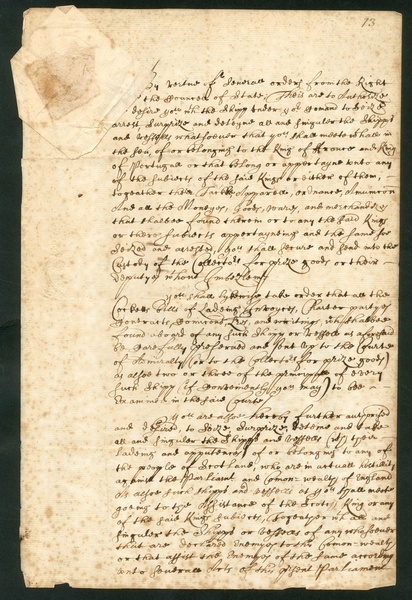 13
By vertue of severall orders from the Right
the Councell of State, Theis are to Authorize
desire you with the Shipp under yor Comand to seize
arrest Surprize and deteyne all and singuler the Shipps
and vessells whatsoever that you shall meete withall in
the Sea, of or belonging to the King of France and King
of Portugall or that belong or appertayne unto any
of the subiects of the said Kings or either of them,
together their Tackle, Apparell, ordnance, Amunicon
And all the Moneyes, Goods, wares and merchandizes
that shalbee found therein or to any the said Kings
or their Subiects apperteyneing and the same soe
seized and arrested, you shall secure and send into the
Custody of the Collectors for prize goods or their
deputyes without Imbezlemt
you shall likewise take order that all the
Bills of Ladeing Invoyces, Charter partyes
Contracts, writings, which shalbee
found aboard of any such Shipp or vessell as aforesaid
be carefully preserved and sent up to the Courte
of Admiralty (or to the Collectors for prize goods)
as alsoe two or three of the principalls of every
such Shipp, if conveniently you may) to bee
Examined in the said Courte
you are alsoe hereby further authorised
and desired, to seize, surprize, deteine and take
all and singuler the Shipps and vessells their
ladeing and of or belonging to any of
the people of Scotland, who are in actuall hostility
against the Parliamt and Comon-wealth of England
As alsoe such Shipps and vessells as you shall meete
going to the Assistance of the Scots King or any
of the said Kings subiects, Together with all and
singuler the Shipps or vessells of any whosoever
that are declared Enemyes to the Comon-wealth
or that assist the Enemyes of the same according
unto severall Acts of this present Parliament